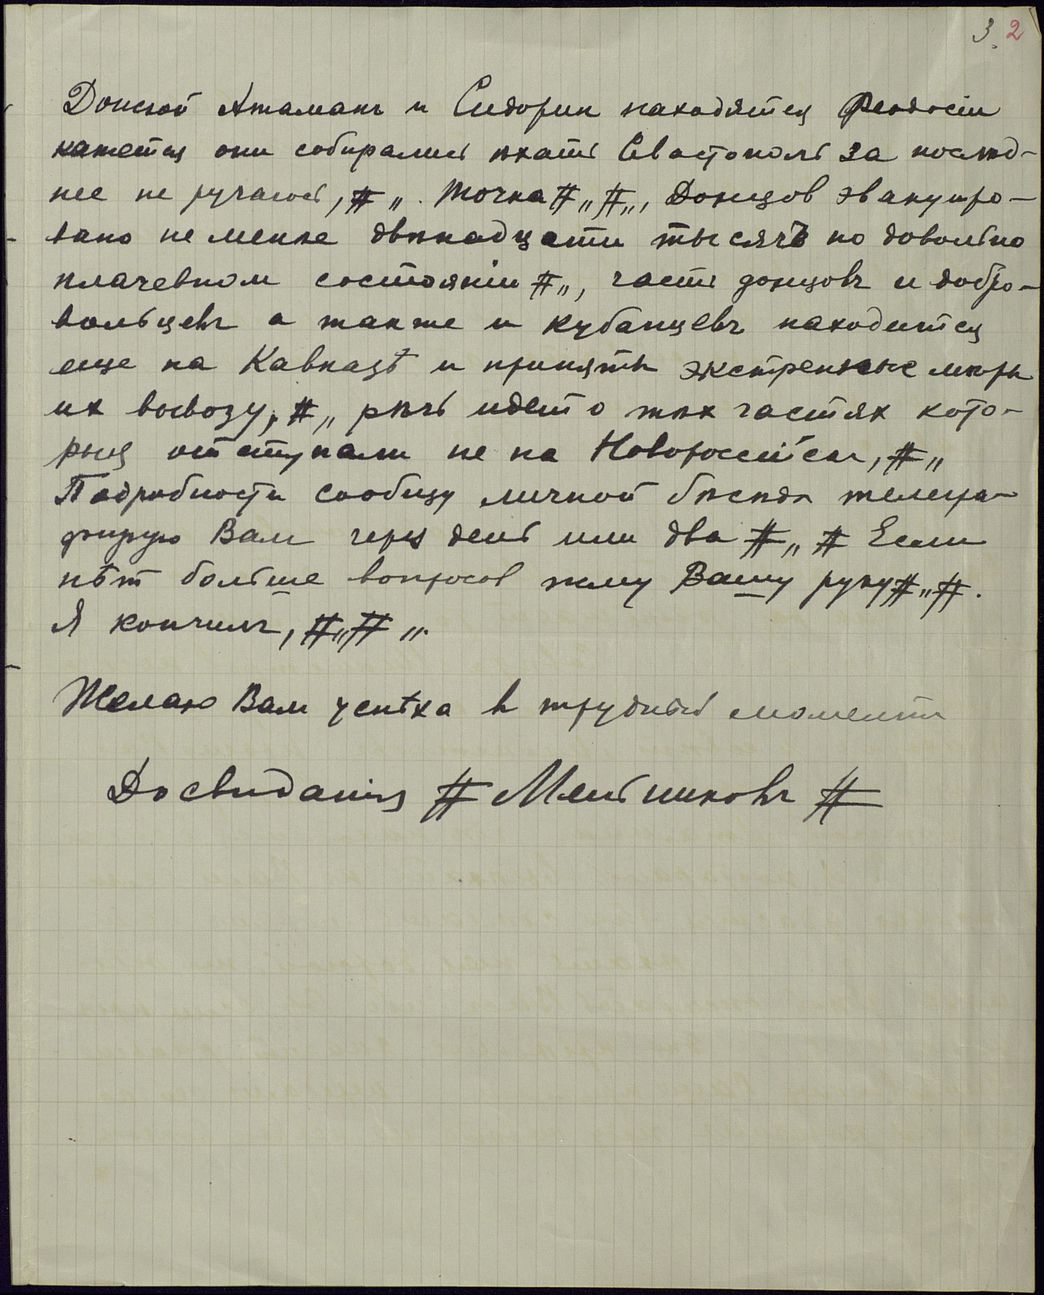 3. 2
Донской Атаманъ и Сидорин находятся Феодосіи
кажется они собирались ѣхать Севастополь за послѣд-
нее не ручаюсь, #„. Точка #„ #„, Донцов эвакуиро-
вано не менѣе двѣнадцати тысячъ но довольно
плачевном состояніи #„, часть донцовъ и добро-
вольцевъ а также и кубанцевъ находится
еще на Кавказѣ и приняты экстренные мѣры
их вывозу, #„ рѣчь идет о тѣх частях кото-
рыя отступали не на Новороссійскъ, #„
Подробности сообщу личной бѣсѣдѣ телегра-
фирую Вам через день или два #„ # Если
нѣт больше вопросов жму Вашу руку #„ #.
Я кончилъ, #„ # „.
Желаю Вам успѣха в трудный моментъ
До свиданія # Мельниковъ #